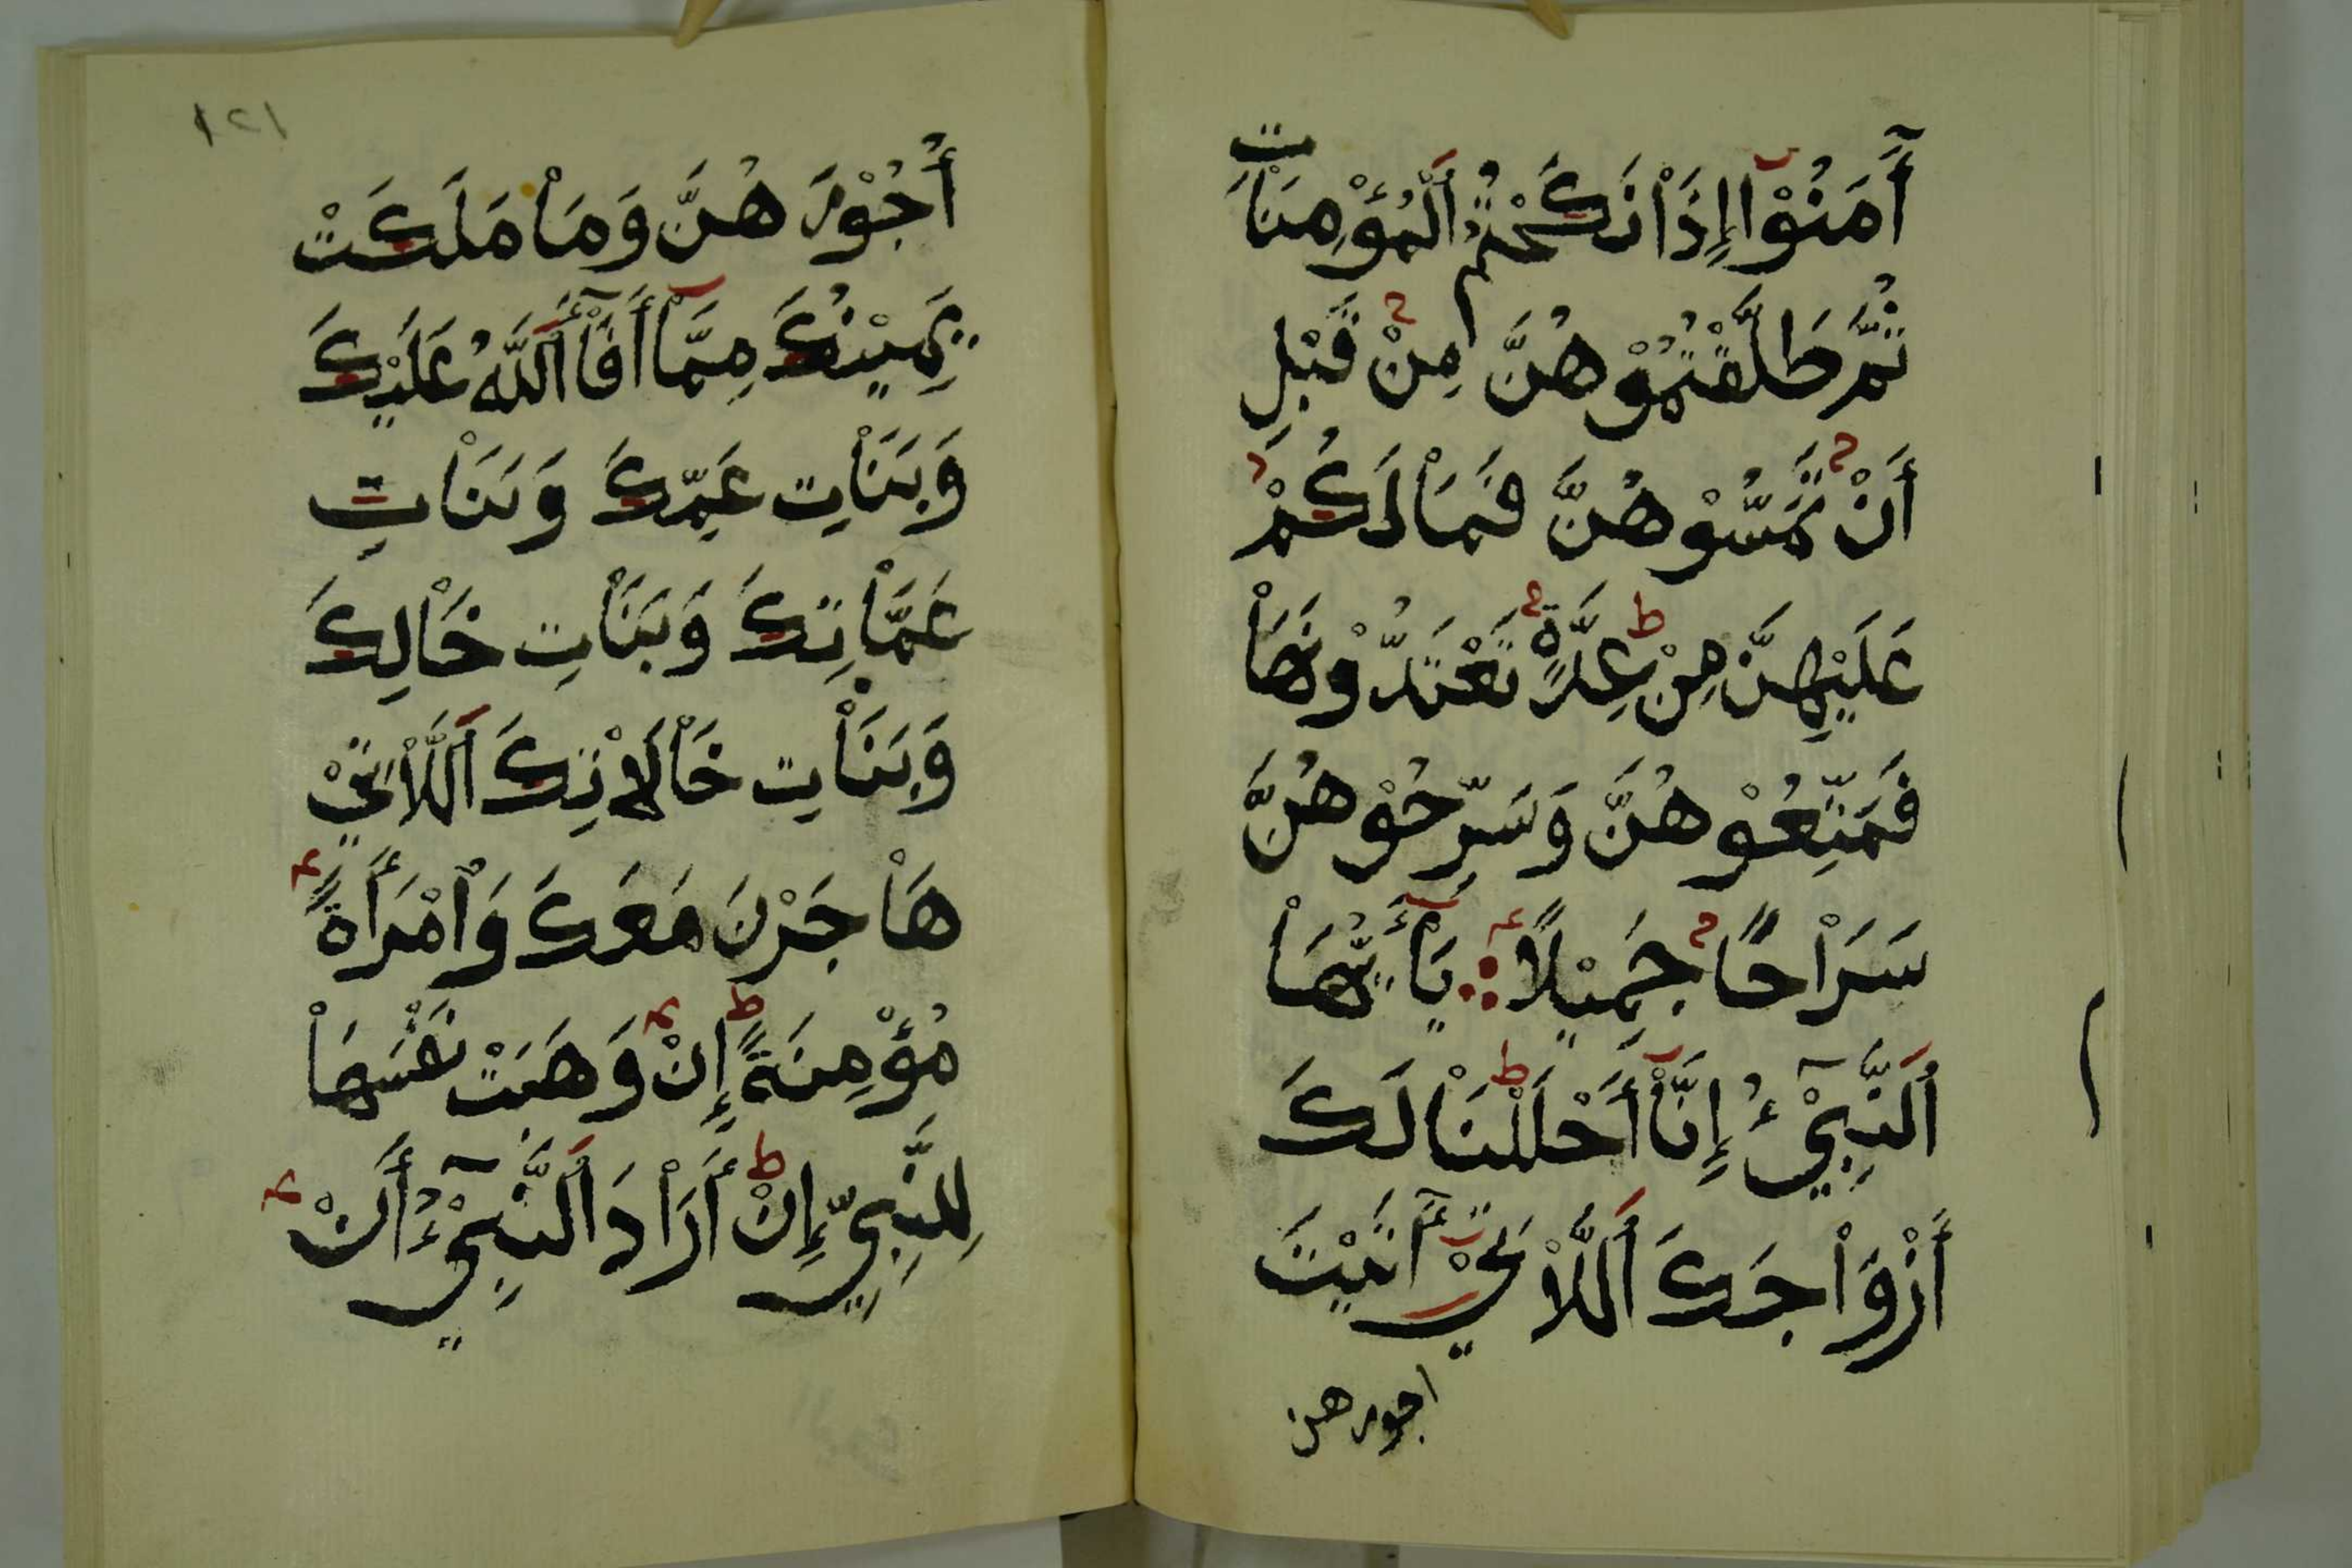 أٓمَنُوْا إِذَاْ نَكَحْتُمُ اَلْمُؤْمِنَاْتِ
ثُمَّ طَلَّقْتُمُوْهُنَّ مِنْ قَبْلِ
أَنْ تَمَسُّوْهُنَّ فَمَاْ لَكُمْ
عَلَيْهِنَّ مِنْ عِدَّةٍ تَعْتَدُّوْنَهَاْ
فَمَتِّعُوْهُنَّ وَسَرِّحُوْهُنَّ
سَرَاْحًا جَمِيْلًا يَاْأَيُّهَاْ
اَلنَّبِيْٓءُ إِنَّاْ أَحْلَلْنَاْ لَكَ
أَزْوَاْجَكَ اَللَّاْتِيْ أٓتَيْتَ
اجورهن
١٢١
أُجُوْرَهُنَّ وَمَاْ مَلَكَتْ
يَمِيْنُكَ مِمَّاْ أَفَآْءَ اَللَّهُ عَلَيْكَ
وَبَنَاْتِ عَمِّكَ وَبَنَاْتِ
عَمَّاْتِكَ وَبَنَاْتِ خَاْلِكَ
وَبَنَاْتِ خَاْلَاْتِكَ اَللَّاْتِيْ
هَاْجَرْنَ مَعَكَ وَاْمْرَأَةً
مُؤْمِنَةً إِنْ وَهَبَتْ نَفْسَهَاْ
لِلنَّبِيِّ إِنْ أَرَاْدَ اَلنَّبِيْٓءُ أَنْ